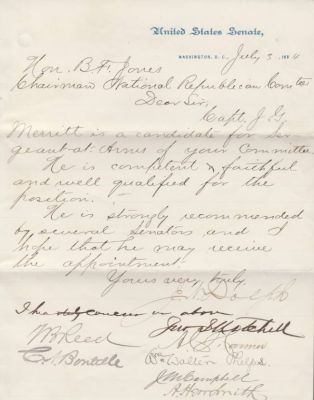 United States Senate,
WASHINGTON, D. C., July 3, 1884
Hon. B. F. Jones
Chairman National Republican Comtee
Dear Sir,
Capt. J. G.
Merritt is a candidate for Ser
geant-at-Arms of your Committee.
He is competent & faithful
and well qualified for the
position.
He is strongly recommended
by several senators and I
hope that he may receive
the appointment.
Yours very truly
J. N. Dolph
I heartily concur in above
Jno. I. Mitchell
W B Reed
Wm Walter Phelps
J M Campbell